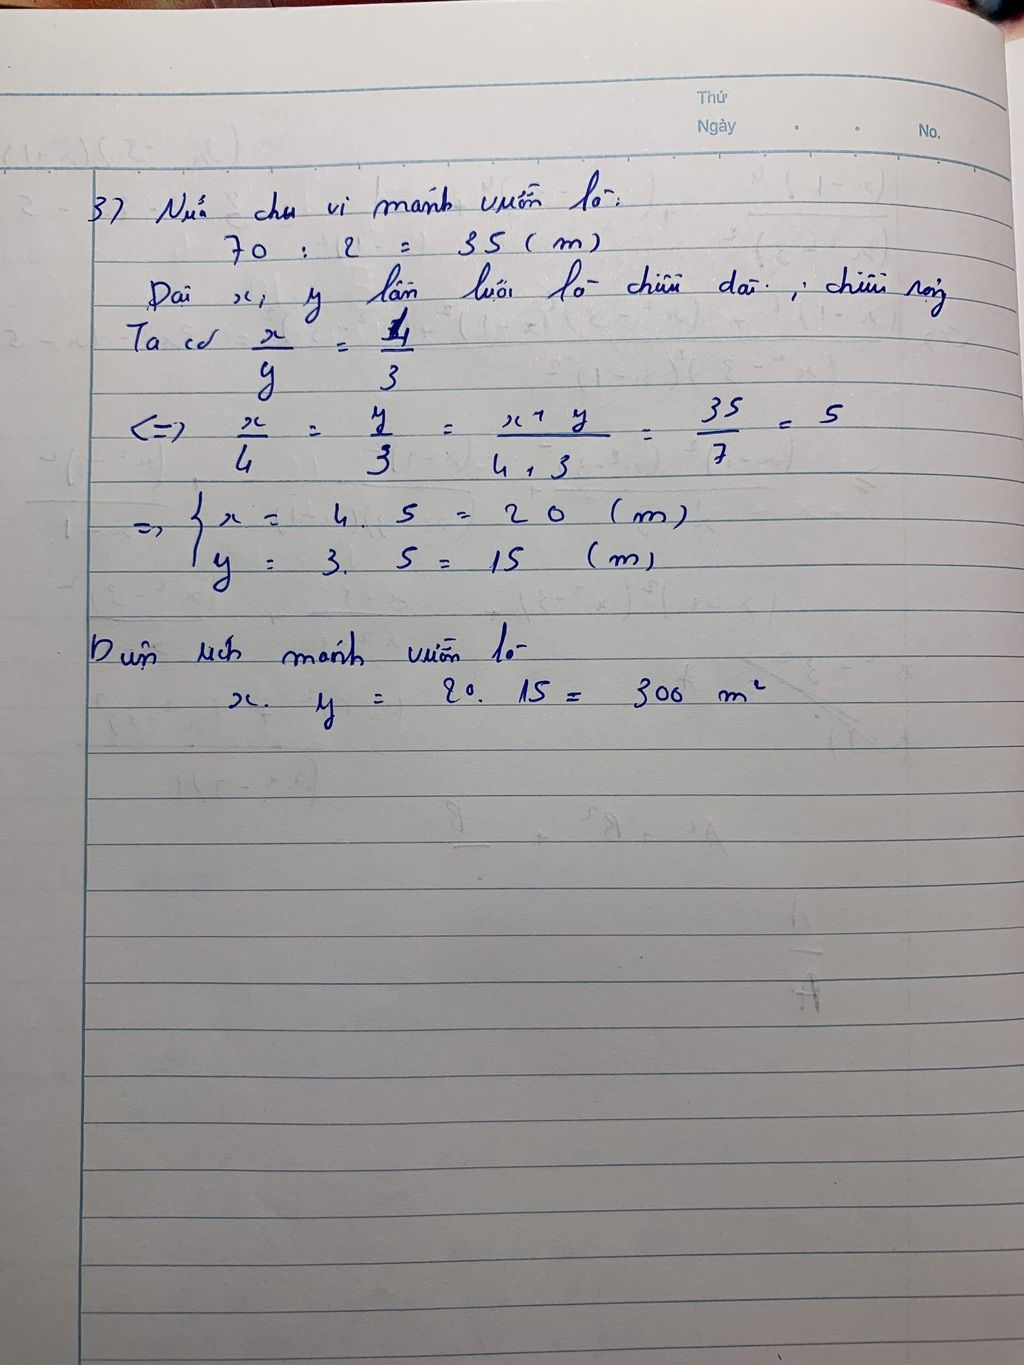 Thứ
Ngày . . No.
3) Nửa chu vi mảnh vườn là:
70 : 2 = 35 (m)
Đặt x, y lần lượt là chiều dài, chiều rộng
Ta có x/y = 4/3
<=> x/4 = y/3 = (x + y)/(4 + 3) = 35/7 = 5
=> { x = 4. 5 = 20 (m)
y = 3. 5 = 15 (m)
Diện tích mảnh vườn là
x. y = 20. 15 = 300 m²